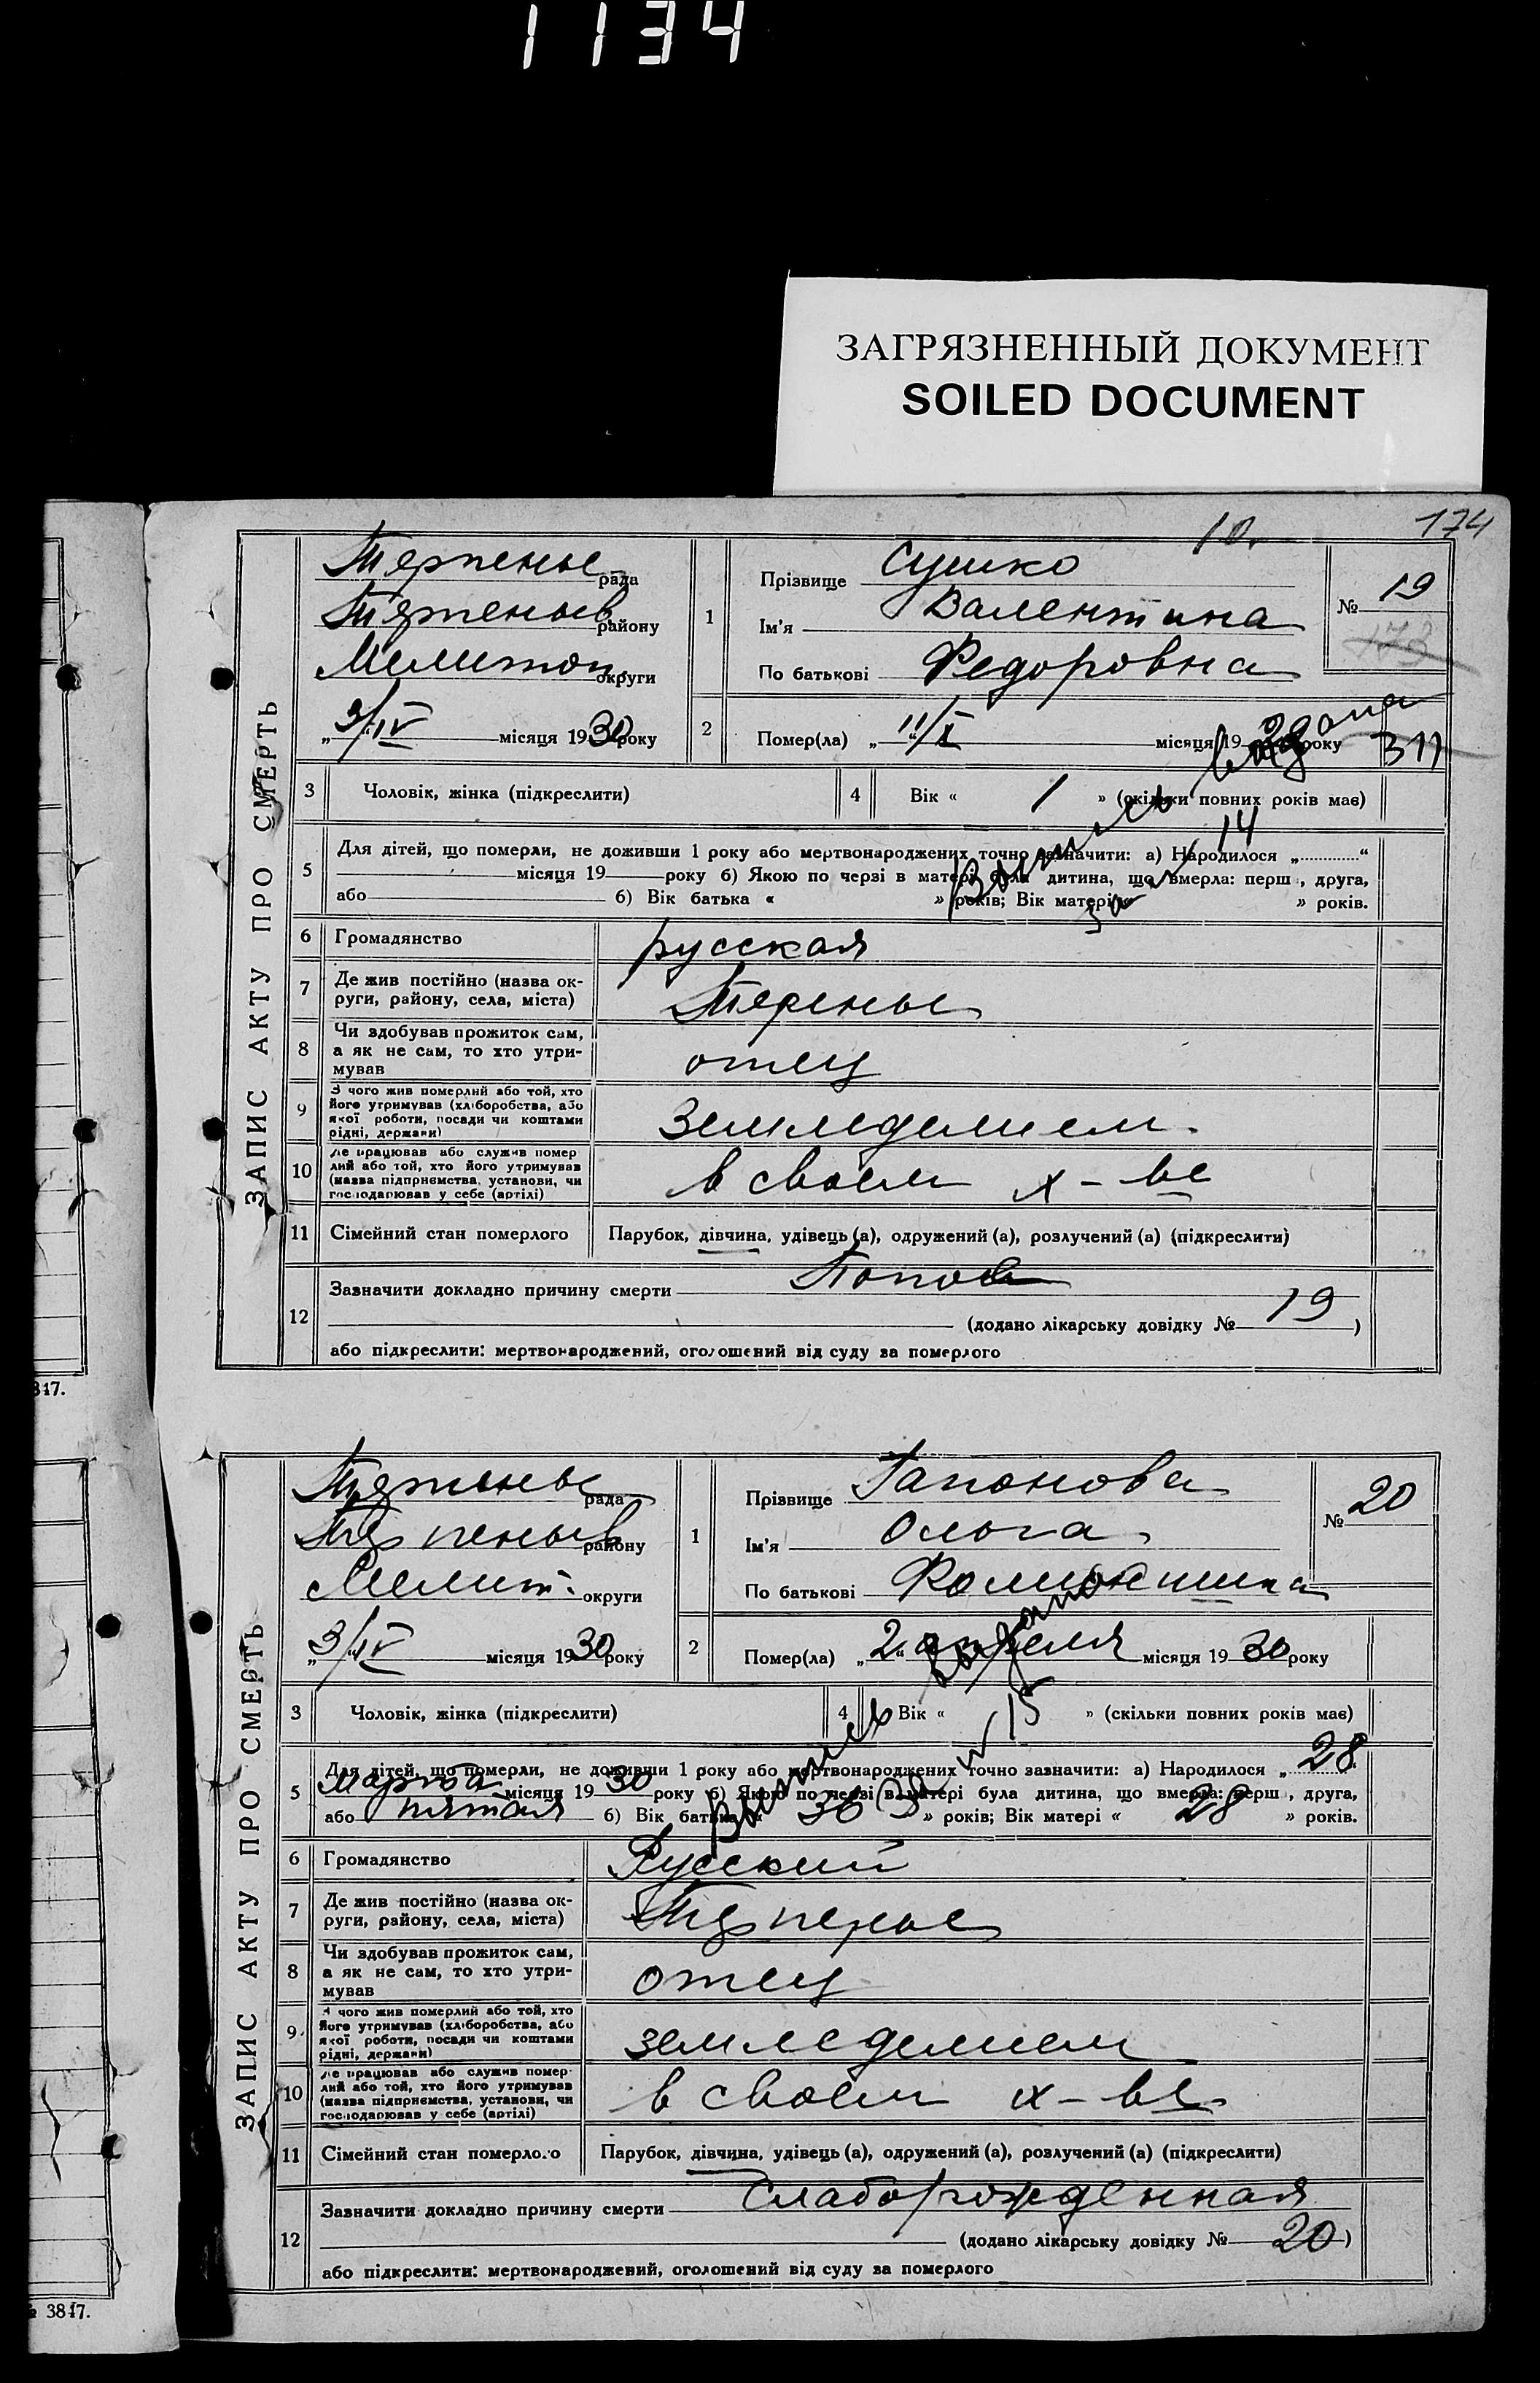 1134
ЗАГРЯЗНЕННЫЙ ДОКУМЕНТ
SOILED DOCUMENT
174
10.
ЗАПИС АКТУ ПРО СМЕРТЬ
Терпенье рада
района
Мелитоп. округи
„3/IV місяця 1930 року
1
Прізвище Сушко
Ім'я Валентина
По батькові Федоровна
№ 19
173
2
Помер(ла) „11“/X місяця 19 року
311
3 Чоловік, жінка (підкреслити)
4 Вік « 1 » (скільки повних років має)
Выпись выдана
за № 14
5 Для дітей, що померли, не доживши 1 року або мертвонароджених точно зазначити: а) Народилося „ “
місяця 19 року б) Якою по черзі в матері була дитина, що вмерла: перш , друга,
або б) Вік батька « » років; Вік матері « » років.
6 Громадянство русская
7 Де жив постійно (назва ок-
руги, району, села, міста) Терпенье
8 Чи здобував прожиток сам,
а як не сам, то хто утри-
мував отец
9 З чого жив померлий або той, хто
його утримував (хліборобства, або
якої роботи, посади чи коштами
рідні, держави) Земледелием.
10 Де працював або служив помер
лий або той, хто його утримував
(назва підприємства, установи, чи
господарював у себе (артілі) в своем х-ве
11 Сімейний стан померлого Парубок, дівчина, удівець (а), одружений (а), розлучений (а) (підкреслити)
12 Зазначити докладно причину смерти
(додано лікарську довідку № 19 )
або підкреслити: мертвонароджений, оголошений від суду за померлого
317.
ЗАПИС АКТУ ПРО СМЕРТЬ
Терпенье рада
району
Мелит. округи
„3/IV місяця 1930 року
1
Прізвище Гапонова
Ім'я Ольга
По батькові
№ 20
2
Помер(ла) „2“ апреля місяця 1930 року
3 Чоловік, жінка (підкреслити)
4 Вік « » (скільки повних років має)
Выпись выдана
За № 15
5 Для дітей, що померли, не доживши 1 року або мертвонароджених точно зазначити: а) Народилося „28“
марта місяця 1930 року б) Якою по черзі в матері була дитина, що вмерла: перш , друга,
або пятая б) Вік батька « 36 » років; Вік матері « 28 » років.
6 Громадянство Русский
7 Де жив постійно (назва ок-
руги, району, села, міста) Терпенье
8 Чи здобував прожиток сам,
а як не сам, то хто утри-
мував отец
9 З чого жив померлий або той, хто
його утримував (хліборобства, або
якої роботи, посади чи коштами
рідні, держави) земледелием
10 Де працював або служив помер-
лий або той, хто його утримував
(назва підприємства, установи, чи
господарював у себе (артілі) в своем х-ве
11 Сімейний стан померлого Парубок, дівчина, удівець (а), одружений (а), розлучений (а) (підкреслити)
12 Зазначити докладно причину смерти Слаборожденная
(додано лікарську довідку № 20 )
або підкреслити: мертвонароджений, оголошений від суду за померлого
№ 3817.